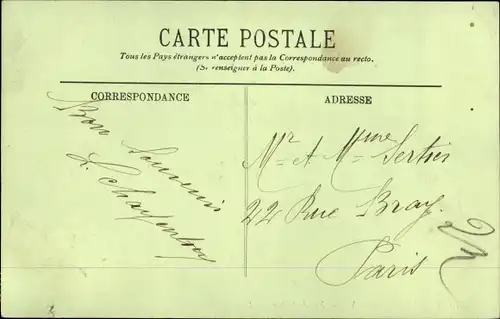 CARTE POSTALE
Tous les Pays étrangers n'acceptent pas la Correspondance au recto.
(Se renseigner à la Poste).
CORRESPONDANCE
ADRESSE
Bon Souvenir
L. Charpentier
Mr et Mme Sertier
22 Rue Bray.
Paris